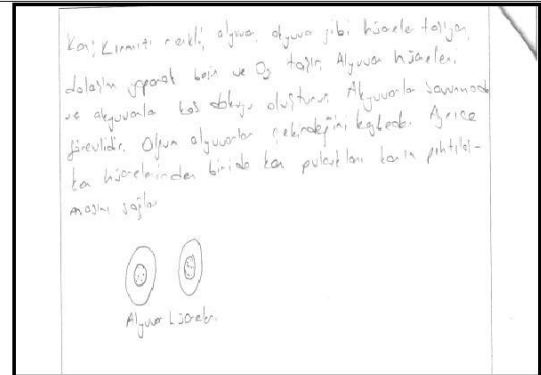 Kan; Kırmızı renkli, alyuvar, akyuvar gibi hücreler taşıyan,
dolaşım yaparak besin ve O₂ taşır. Alyuvar hücreleri
ve akyuvarla kas dokuyu oluşturur. Akyuvarlar savunmada
görevlidir. Olgun alyuvarlar çekirdeğini kaybeder. Ayrıca
kan hücrelerinden biride kan pulcukları kanın pıhtılaş-
masını sağlar
Alyuvar Hücreleri